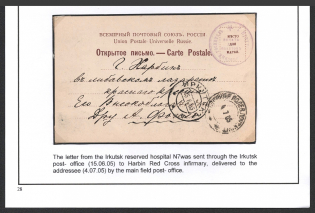 ВСЕМІРНЫЙ ПОЧТОВЫЙ СОЮЗЪ. РОССІЯ
Union Postale Universelle Russie
Открытое письмо. — Carte Postale.
Г. Харбинъ
въ ливавскомъ лазаретѣ
краснаго
Его Высокоблаг
Д-ру А.
The letter from the Irkutsk reserved hospital N7was sent through the Irkutsk
post- office (15.06.05) to Harbin Red Cross infirmary, delivered to the
addressee (4.07.05) by the main field post- office.
28